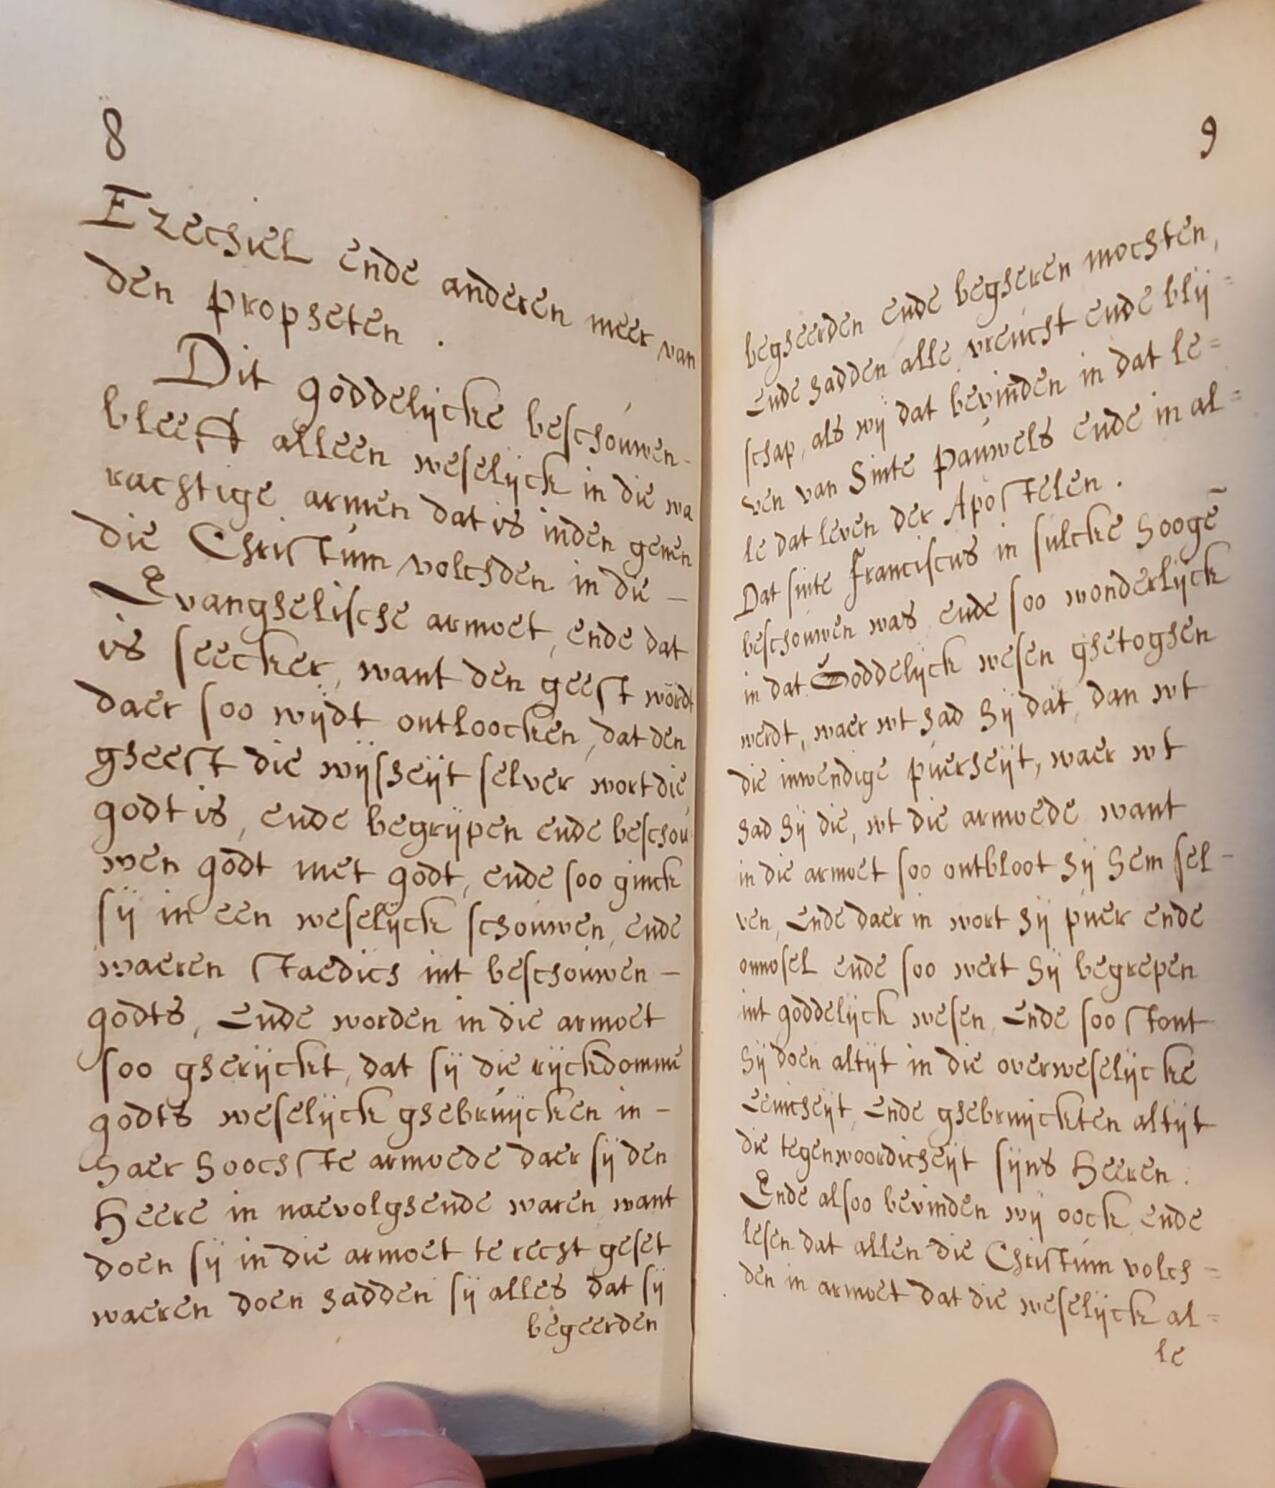 8
Ezechiel ende anderen meer van
den propheten .
Dit goddelijcke beschouwen-
bleeff alleen weselijck in die wa
rachtige armen dat is inden genen
die Christum volchden in die —
Evanghelische armoet, ende dat
is seecker, want den geest wordt
daer soo wijdt ontloocken, dat den
gheest die wijsheijt selver wort die
godt is, ende begrijpen ende beschou
wen godt met godt, ende soo ginck
sij in een weselijck schouwen, ende
waeren staedich int beschouwen —
godts, Ende worden in die armoet
soo gherijckt, dat sij die rijckdomme
godts weselijck ghebruijcken in –
haer hoochste armoede daer sij den
Heere in naevolghende waren want
doen sij in die armoet te recht geset
waeren doen hadden sij alles dat sij
begeerden
9
begheerden ende begheren mochten,
Ende hadden alle vreucht ende blij=
schap, als wij dat bevinden in dat le=
ven van Sinte Pauwels ende in al=
le dat leven der Apostelen .
Dat sinte Franciscus in sulcke hoogē
beschouwen was ende soo wonderlijck
in dat Goddelijck wesen ghetoghen
werdt, waer wt had hij dat, dan wt
die inwendige puerheijt, waer wt
had hij die, wt die armoede want
in die armoet soo ontbloot hij hem sel-
ven, Ende daer in wort hij puer ende
onnosel ende soo wert hij begrepen
int goddelijck wesen, Ende soo stont
hij doen altijt in die overweselijcke
Eenicheijt, Ende ghebruijckten altijt
die tegenwoordicheijt sijns Heeren .
Ende alsoo bevinden wij oock ende
lesen dat allen die Christum volch=
den in armoet dat die weselijck al=
le